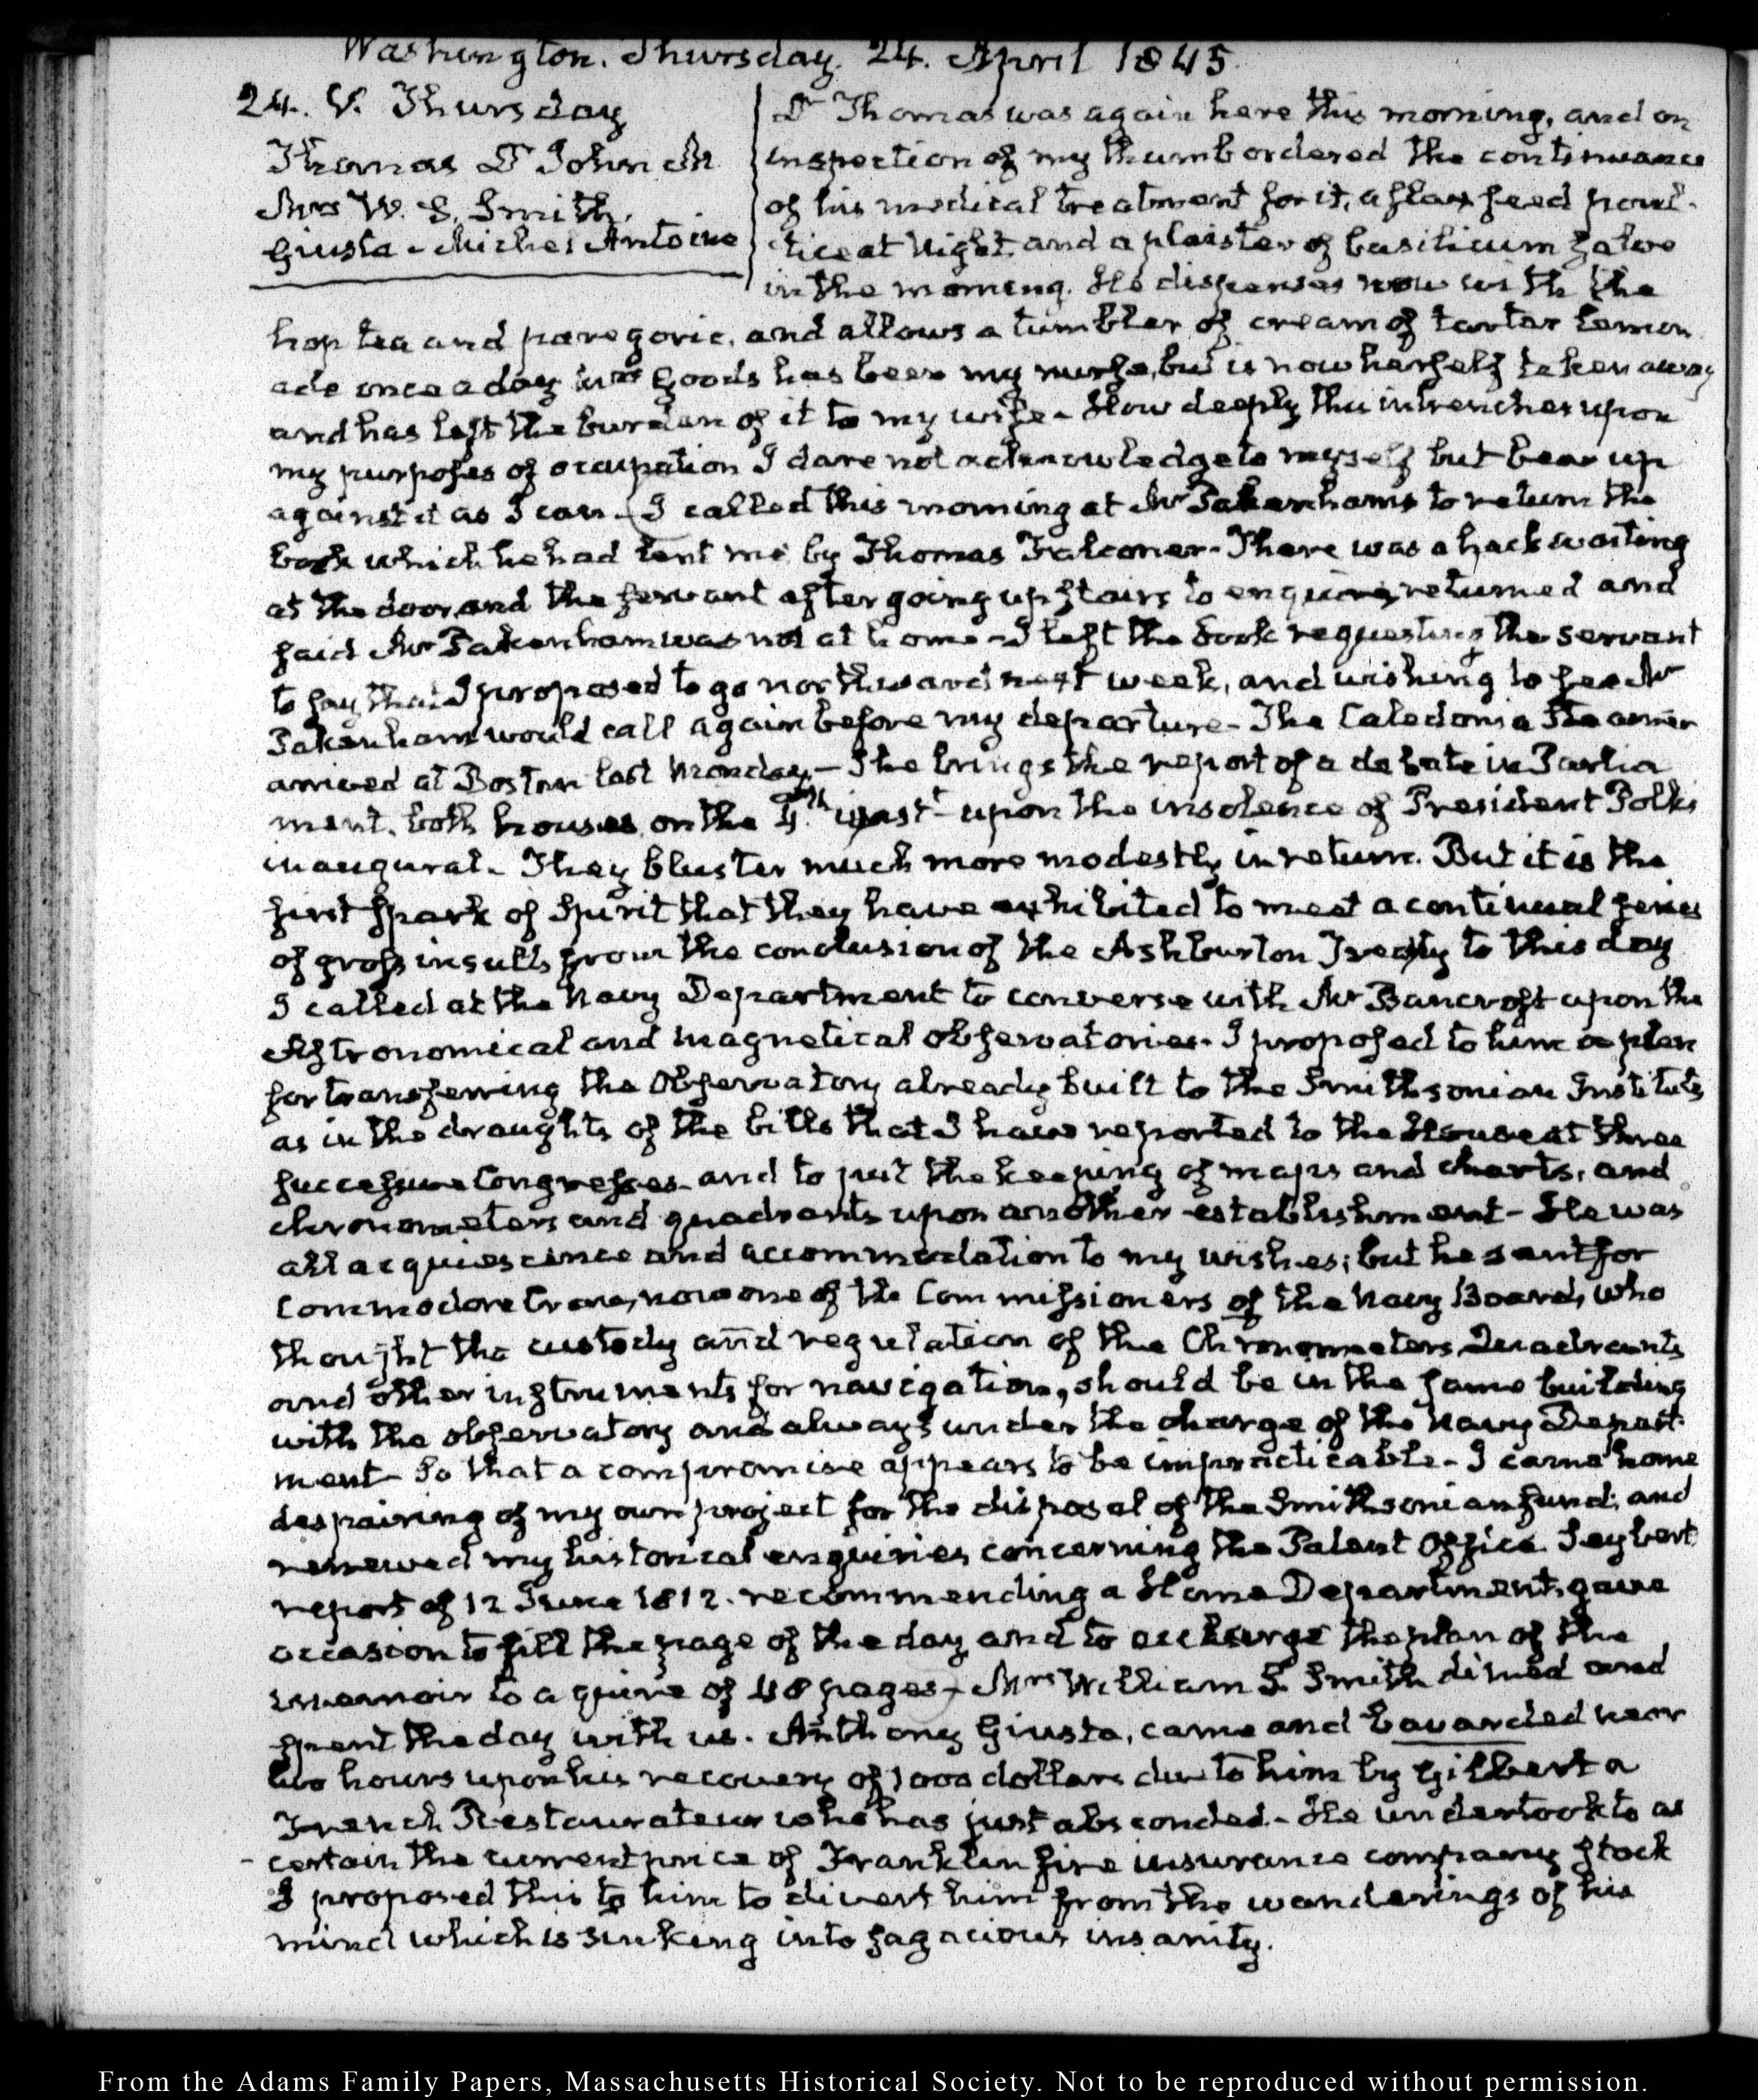 Washington. Thursday. 24. April 1845
24. V. Thursday
Thomas Dr John M
Mrs W. S. Smith.
Giusta - Michel Antoine
Dr Thomas was again here this morning, and on
inspection of my thumb ordered the continuance
of his medical treatment for it, a flax seed poul-
tice at Night, and a plaister of basilicum salve
in the morning. He dispenses now with the
hop tea and paregoric, and allows a tumbler of cream of tartar lemon
ade once a day. Mrs Goods has been my nurse, but is now herself taken away
and has left the burden of it to my wife - How deeply this intrenches upon
my purposes of occupation I dare not acknowledge to myself but bear up
against it as I can - I called this morning at Mr Pakenham's to return the
book which he had lent me by Thomas Falconer - There was a hack waiting
at the door and the servant after going up stairs to enquire, returned and
said Mr Pakenham was not at home - I left the book requesting the servant
to say that I proposed to go northward next week, and wishing to see Mr
Pakenham would call again before my departure - The Caledonia Steamer
arrived at Boston last Monday - She brings the report of a debate in Parlia
ment, both houses, on the 4th inst upon the insolence of President Polk's
inaugural - They bluster much more modestly in return. But it is the
first spark of Spirit that they have exhibited to meet a continual series
of gross insults from the conclusion of the Ashburton Treaty to this day
I called at the Navy Department to converse with Mr Bancroft upon the
Astronomical and magnetical observatories - I proposed to him a plan
for transferring the Observatory already built to the Smithsonian Institute
as in the draughts of the bills that I have reported to the House at three
successive Congresses - and to put the keeping of maps and charts, and
chronometers and quadrants upon another establishment - He was
all acquiescence and accommodation to my wishes; but he sent for
Commodore Crane, now one of the Commissioners of the Navy Board, who
thought the custody and regulation of the Chronometers, Quadrants
and other instruments for navigation, should be in the same building
with the observatory and always under the charge of the Navy Depart
ment - So that a compromise appears to be impracticable - I came home
despairing of my own project for the disposal of the Smithsonian fund; and
renewed my historical enquiries concerning the Patent Office. Seybert
report of 12 June 1812. recommending a Home Department, gave
occasion to fill the page of the day, and to enlarge the plan of the
memoir to a quire of 48 pages - Mrs William S. Smith dined and
spent the day with us. Anthony Giusta, came and bavarded near
two hours upon his recovery of 1000 dollars due to him by Gilbert a
French Restaurateur who has just absconded - He undertook to as
certain the current price of Franklin fire insurance company stock
I proposed this to him to divert him from the wanderings of his
mind which is sinking into sagacious insanity.
From the Adams Family Papers, Massachusetts Historical Society. Not to be reproduced without permission.